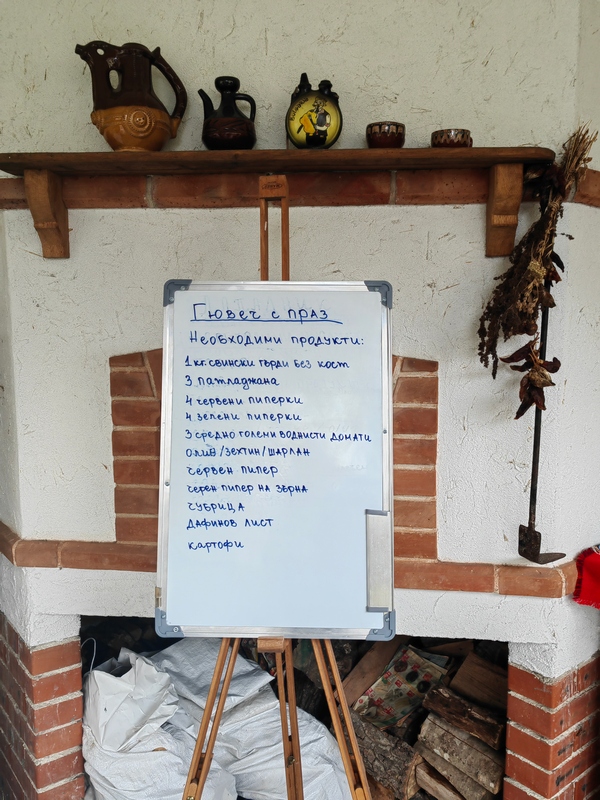 Гювеч с праз
Необходими продукти:
1 кг. свински гърди без кост
3 патладжана
4 червени пиперки
4 зелени пиперки
3 средно големи воднисти домати
олио/зехтин/шарлан
червен пипер
черен пипер на зърна
чубрица
дафинов лист
картофи